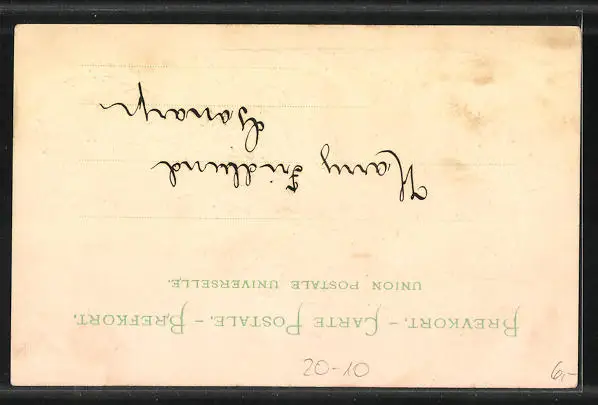 BREVKORT. – CARTE POSTALE. – BREFKORT.
UNION POSTALE UNIVERSELLE.
Harry Fridlund
20-10
6,-